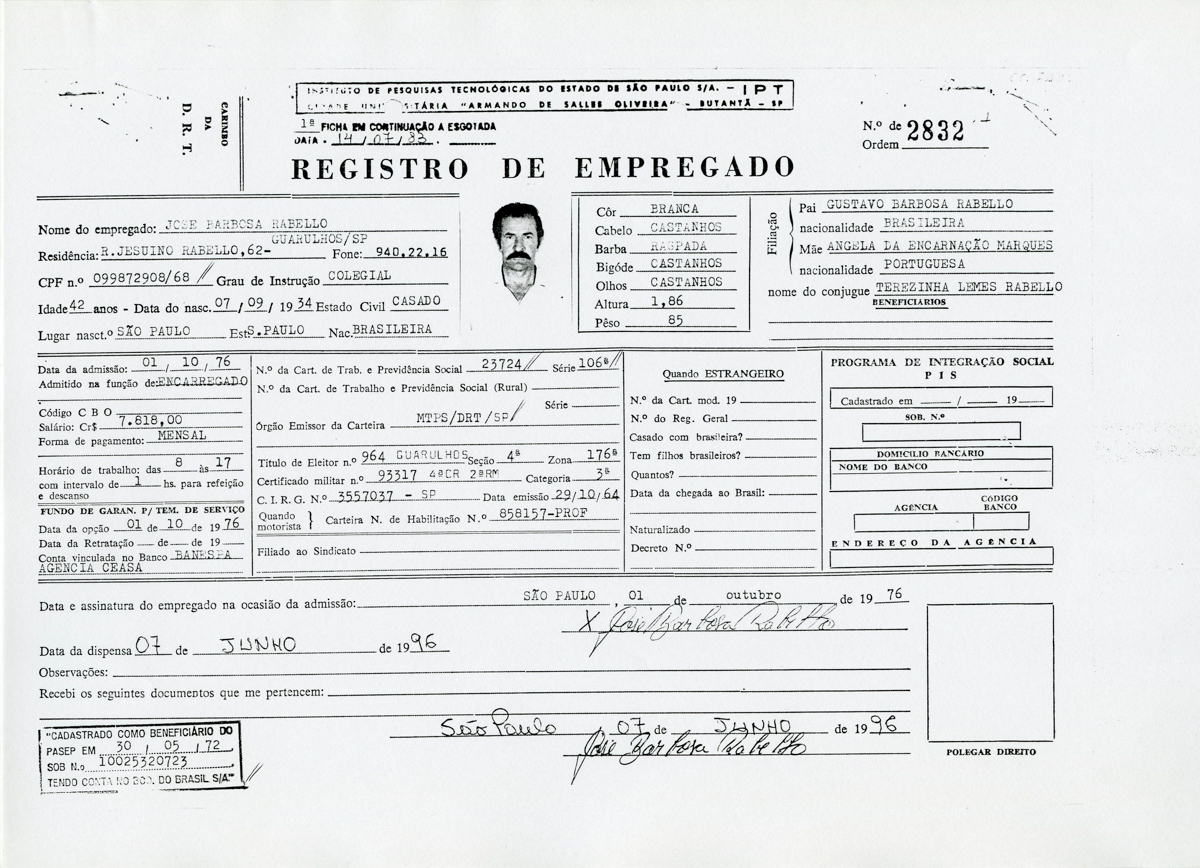 INSTITUTO DE PESQUISAS TECNOLÓGICAS DO ESTADO DE SÃO PAULO S/A. - IPT
CIDADE UNIVERSITÁRIA "ARMANDO DE SALLES OLIVEIRA" - BUTANTÃ - SP
CARIMBO DA D. R. T.
1ª FICHA EM CONTINUAÇÃO A ESGOTADA
DATA - 14/07/83.
N.º de Ordem 2832
REGISTRO DE EMPREGADO
Nome do empregado: JOSE BARBOSA RABELLO
GUARULHOS/SP
Residência: R.JESUINO RABELLO,62- Fone: 940.22.16
CPF n.º 099872908/68 Grau de Instrução COLEGIAL
Idade 42 anos - Data do nasc. 07/09/1934 Estado Civil CASADO
Lugar nasct.º SÃO PAULO Est. S.PAULO Nac. BRASILEIRA
Côr BRANCA
Cabelo CASTANHOS
Barba RASPADA
Bigóde CASTANHOS
Olhos CASTANHOS
Altura 1,86
Pêso 85
Filiação
Pai GUSTAVO BARBOSA RABELLO
nacionalidade BRASILEIRA
Mãe ANGELA DA ENCARNAÇÃO MARQUES
nacionalidade PORTUGUESA
nome do conjugue TEREZINHA LEMES RABELLO
BENEFICIÁRIOS
Data da admissão: 01/10/76
Admitido na função de: ENCARREGADO
Código C B O
Salário: Cr$ 7.818,00
Forma de pagamento: MENSAL
Horário de trabalho: das 8 às 17
com intervalo de 1 hs. para refeição
e descanso
FUNDO DE GARAN. P/ TEM. DE SERVIÇO
Data da opção 01 de 10 de 1976
Data da Retratação — de — de 19 —
Conta vinculada no Banco BANESPA
AGENCIA CEASA
N.º da Cart. de Trab. e Previdência Social 23724 Série 106ª
N.º da Cart. de Trabalho e Previdência Social (Rural)
Série
Órgão Emissor da Carteira MTPS/DRT/SP/
Titulo de Eleitor n.º 964 GUARULHOS Seção 4ª Zona 176ª
Certificado militar n.º 93317 4ªCR 2ªRM Categoria 3ª
C. I. R G. N.º 3557037 - SP Data emissão 29/10/64
Quando motorista } Carteira N. de Habilitação N.º 858157-PROF
Filiado ao Sindicato
Quando ESTRANGEIRO
N.º da Cart. mod. 19
N.º do Reg. Geral
Casado com brasileira?
Tem filhos brasileiros?
Quantos?
Data da chegada ao Brasil:
Naturalizado
Decreto N.º
PROGRAMA DE INTEGRAÇÃO SOCIAL
P I S
Cadastrado em — / — 19 —
SOB. N.º
DOMICÍLIO BANCÁRIO
NOME DO BANCO
AGÊNCIA
CÓDIGO BANCO
ENDEREÇO DA AGÊNCIA
Data e assinatura do empregado na ocasião da admissão: SÃO PAULO, 01 de outubro de 1976
X José Barbosa Rabello
Data da dispensa 07 de JUNHO de 1996
Observações:
Recebi os seguintes documentos que me pertencem:
São Paulo 07 de JUNHO de 1996
José Barbosa Rabello
"CADASTRADO COMO BENEFICIÁRIO DO
PASEP EM 30 / 05 / 72
SOB N.o 10025320723
TENDO CONTA NO BCO. DO BRASIL S/A."
POLEGAR DIREITO